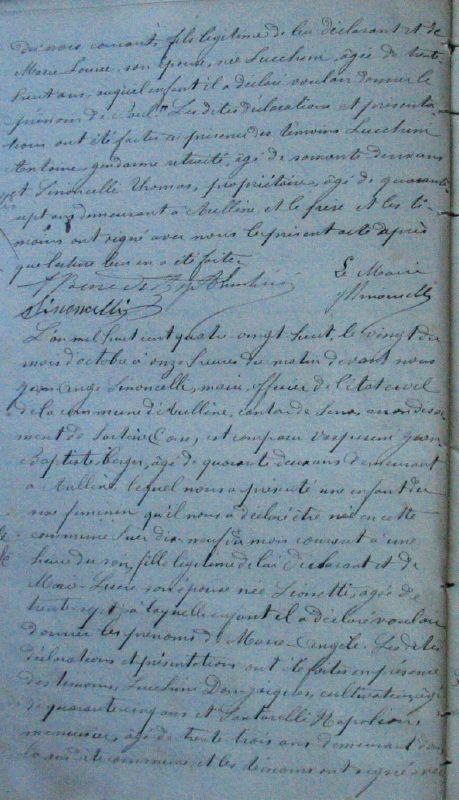 du mois courant, fils légitime de lui déclarant et de
Marie Louise, son épouse, née Lucchini, âgée de trente
huit ans, auquel enfant il a déclaré vouloir donner le
prénom de Les dites déclarations et présenta
tions ont été faites en présence des témoins Lucchini
Antoine, gendarme retraité, âgé de soixante deux ans
et Simoncelli Thomas, propriétaire, âgé de quarante
sept ans demeurant à Aullène, et le père et les té-
moins ont signé avec nous le présent acte après
que lecture leur en a été faite.
Le Maire
Simoncelli
L'an mil huit cent quatre-vingt huit, le vingt du
mois d'octobre à onze heures du matin devant nous
Jean Ange Simoncelli, maire, officier de l'état civil
de la commune d'Aullène, canton de Serra, arrondisse
ment de Sartène (Corse), est comparu Vesperini Jean
Baptiste, berger, âgé de quarante deux ans demeurant
à Aullène, lequel nous a présenté une enfant du
sexe féminin qu'il nous a déclaré être née en cette
commune hier dix neuf du mois courant à une
heure du soir, fille légitime de lui déclarant et de
Marie-Lucie son épouse née Lionetti, âgée de
trente sept, à laquelle enfant il a déclaré vouloir
donner les prénoms de Marie-Angèle. Les dites
déclarations et présentations ont été faites en présence
des témoins, Lucchini cultivateur, âgé
de quarante cinq ans et Santarelli Napoléon,
menuisier, âgé de trente trois ans demeurant dans
la susdite commune, et les témoins ont signé avec